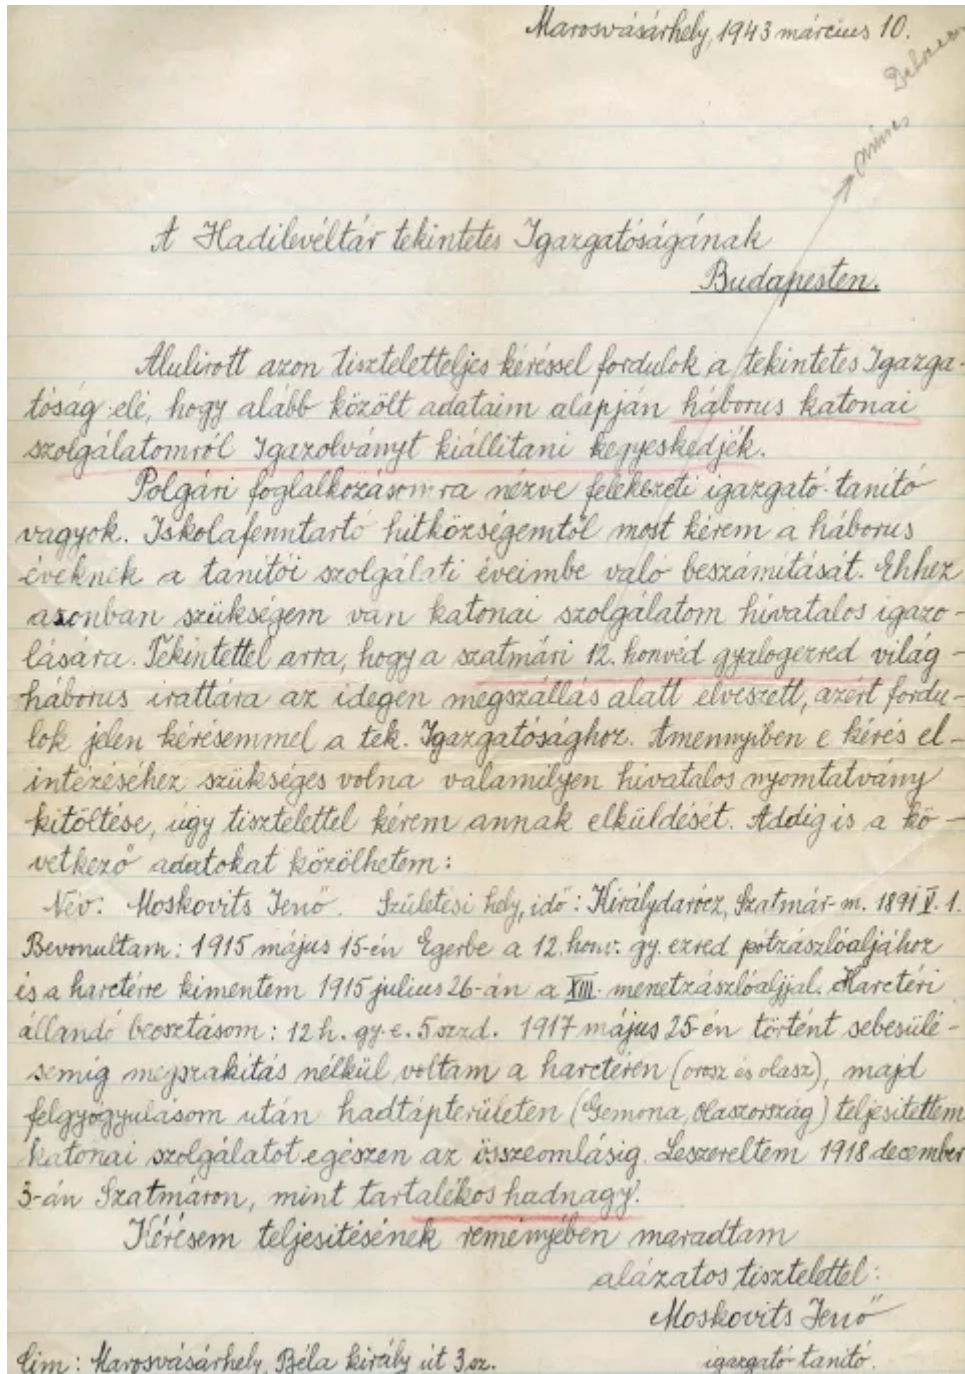 Marosvásárhely, 1943 március 10.
A Hadilevéltár tekintetes Igazgatóságának
Budapesten.
Alulirott azon tiszteletteljes kéréssel fordulok a tekintetes Igazga-
tóság elé, hogy alább közölt adataim alapján háborus katonai
szolgálatomról Igazolványt kiállitani kegyeskedjék.
Polgári foglalkozásomra nézve felekezeti igazgató-tanító
vagyok. Iskolafenntartó hitközségemtől most kérem a háborus
éveknek a tanítói szolgálati éveimbe való beszámítását. Ehhez
azonban szükségem van katonai szolgálatom hivatalos igazo-
lására. Tekintettel arra, hogy a szatmári 12. honvéd gyalogezred világ-
háborus irattára az idegen megszállás alatt elveszett, azért fordu-
lok jelen kérésemmel a tek. Igazgatósághoz. Amennyiben e kérés el-
intézéséhez szükséges volna valamilyen hivatalos nyomtatvány
kitöltése, úgy tisztelettel kérem annak elküldését. Addig is a kö-
vetkező adatokat közölhetem:
Név: Moskovits Jenő. Születési hely, idő: Királydarócz, Szatmár-m. 1891 V. 1.
Bevonultam: 1915 május 15-én Egerbe a 12. honv. gy. ezred pótzászlóaljához
és a harctérre kimentem 1915 julius 26-án a XIII. menetzászlóaljjal. Harctéri
állandó beosztásom: 12 h. gy. e. 5 szzd. 1917 május 25-én történt sebesülé-
semig megszakitás nélkül voltam a harctéren (orosz és olasz), majd
felgyógyulásom után hadtápterületen (Gemona, Olaszország) teljesitettem
katonai szolgálatot egészen az összeomlásig. Leszereltem 1918 december
3-án Szatmáron, mint tartalékos hadnagy.
Kérésem teljesitésének reményében maradtam
alázatos tisztelettel:
Moskovits Jenő
igazgató-tanító.
Cim: Marosvásárhely, Béla király út 3 sz.